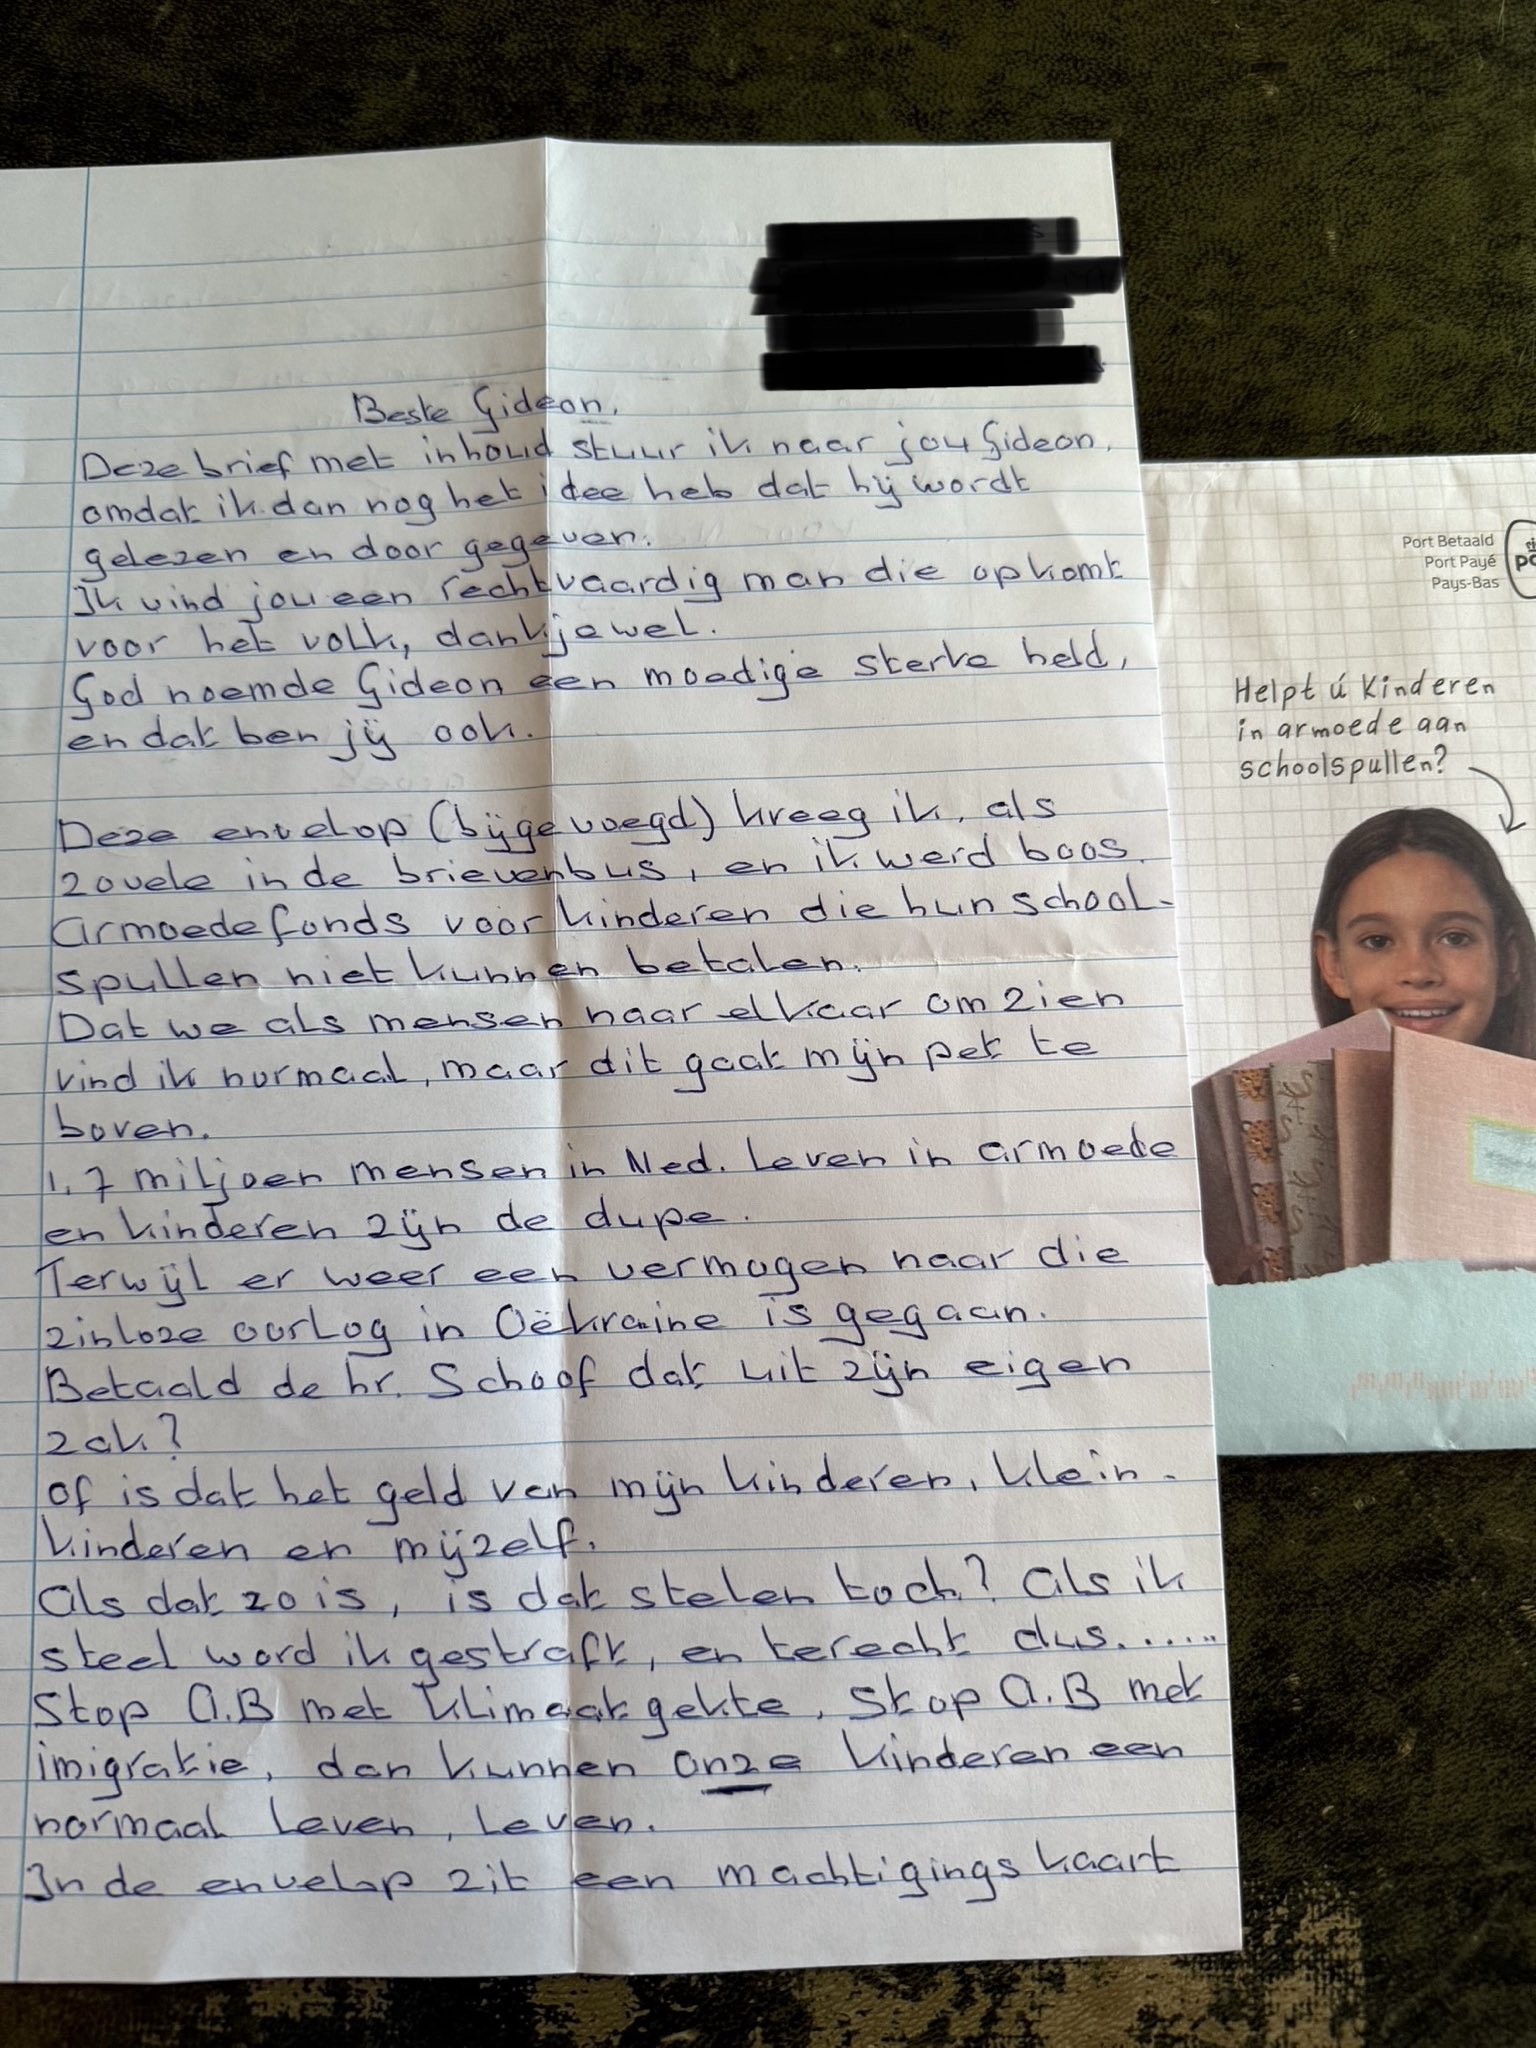 Beste Gideon,
Deze brief met inhoud stuur ik naar jou Gideon,
omdat ik dan nog het idee heb dat hij wordt
gelezen en door gegeven.
Ik vind jou een rechtvaardig man die opkomt
voor het volk, dankjewel.
God noemde Gideon een moedige sterke held,
en dat ben jij ook.
Deze envelop (bijgevoegd) kreeg ik, als
zovele in de brievenbus, en ik werd boos.
Armoedefonds voor kinderen die hun school-
spullen niet kunnen betalen.
Dat we als mensen naar elkaar omzien
vind ik normaal, maar dit gaat mijn pet te
boven.
1,7 miljoen mensen in Ned. leven in armoede
en kinderen zijn de dupe.
Terwijl er weer een vermogen naar die
zinloze oorlog in Oëkraine is gegaan.
Betaald de hr. Schoof dat uit zijn eigen
zak?
Of is dat het geld van mijn kinderen, klein-
kinderen en mijzelf.
Als dat zo is, is dat stelen toch? Als ik
steel word ik gestraft, en terecht dus......
Stop A.B met klimaatgekte, Stop A.B met
imigratie, dan kunnen onze kinderen een
normaal leven, leven.
In de envelop zit een machtigingskaart
Port Betaald
Port Payé
Pays-Bas
Helpt ú kinderen
in armoede aan
schoolspullen?